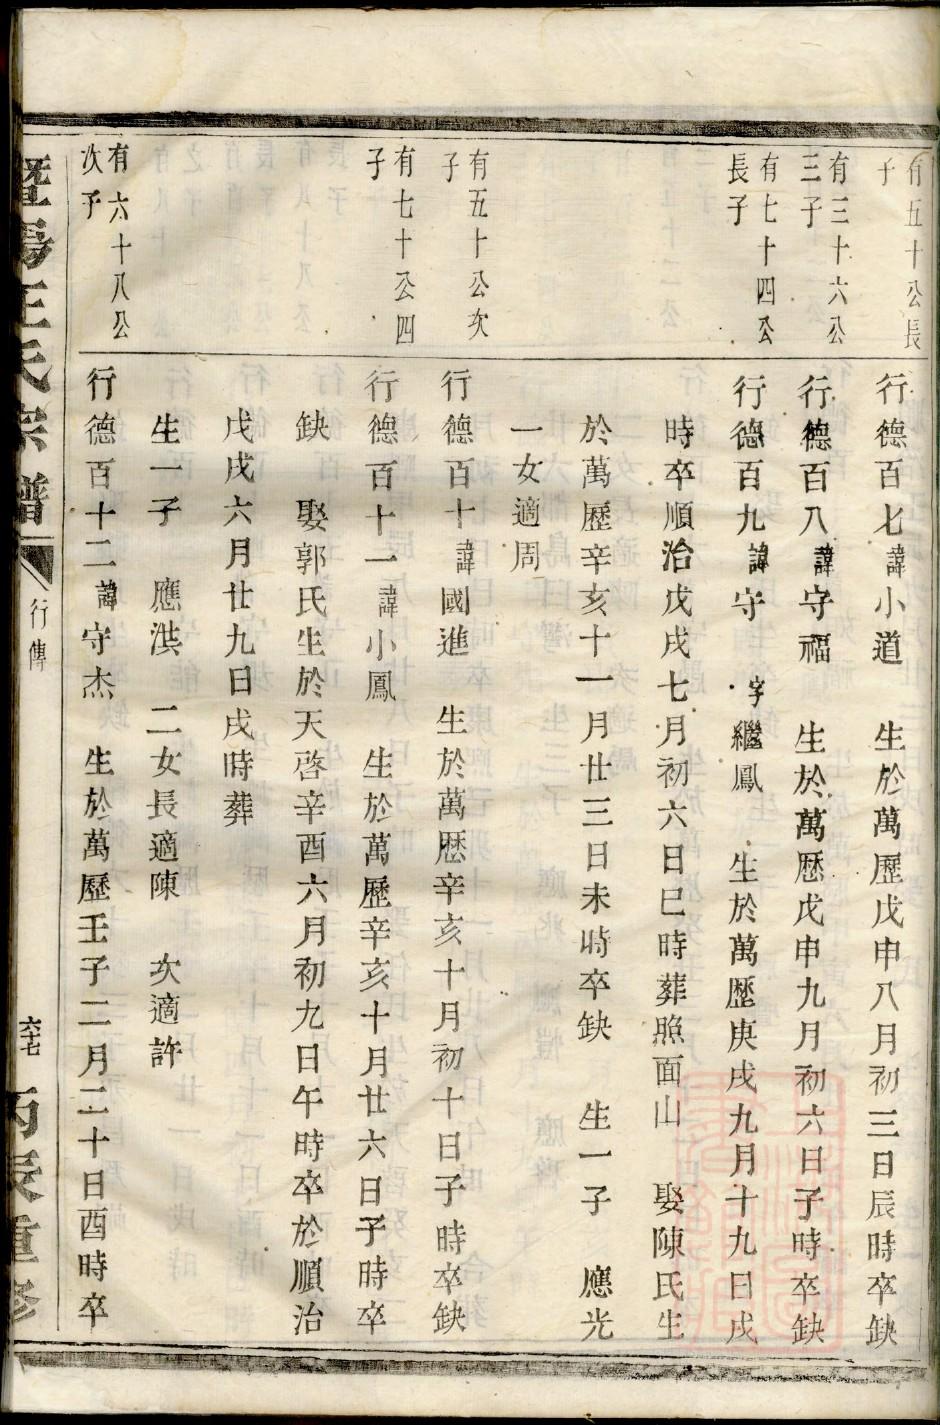 有五十公長
子
行德百七諱小道 生於萬歷戊申八月初三日辰時卒缺
有三十六公
三子
行德百八諱守福 生於萬歷戊申九月初六日子時卒缺
有七十四公
長子
行德百九諱守 字繼鳳 生於萬歷庚戌九月十九日戌
時卒順治戊戌七月初六日巳時葬照面山 娶陳氏生
於萬歷辛亥十一月廿三日未時卒缺 生一子 應光
一女適周
有五十公次
子
行德百十諱國進 生於萬歷辛亥十月初十日子時卒缺
有七十公四
子
行德百十一諱小鳳 生於萬歷辛亥十月廿六日子時卒
缺 娶郭氏生於天啓辛酉六月初九日午時卒於順治
戊戌六月廿九日戌時葬
生一子 應洪 二女長適陳 次適許
有六十八公
次子
行德百十二諱守杰 生於萬歷壬子二月二十日酉時卒
暨陽王氏宗譜 行傳 六十七 丙辰重修